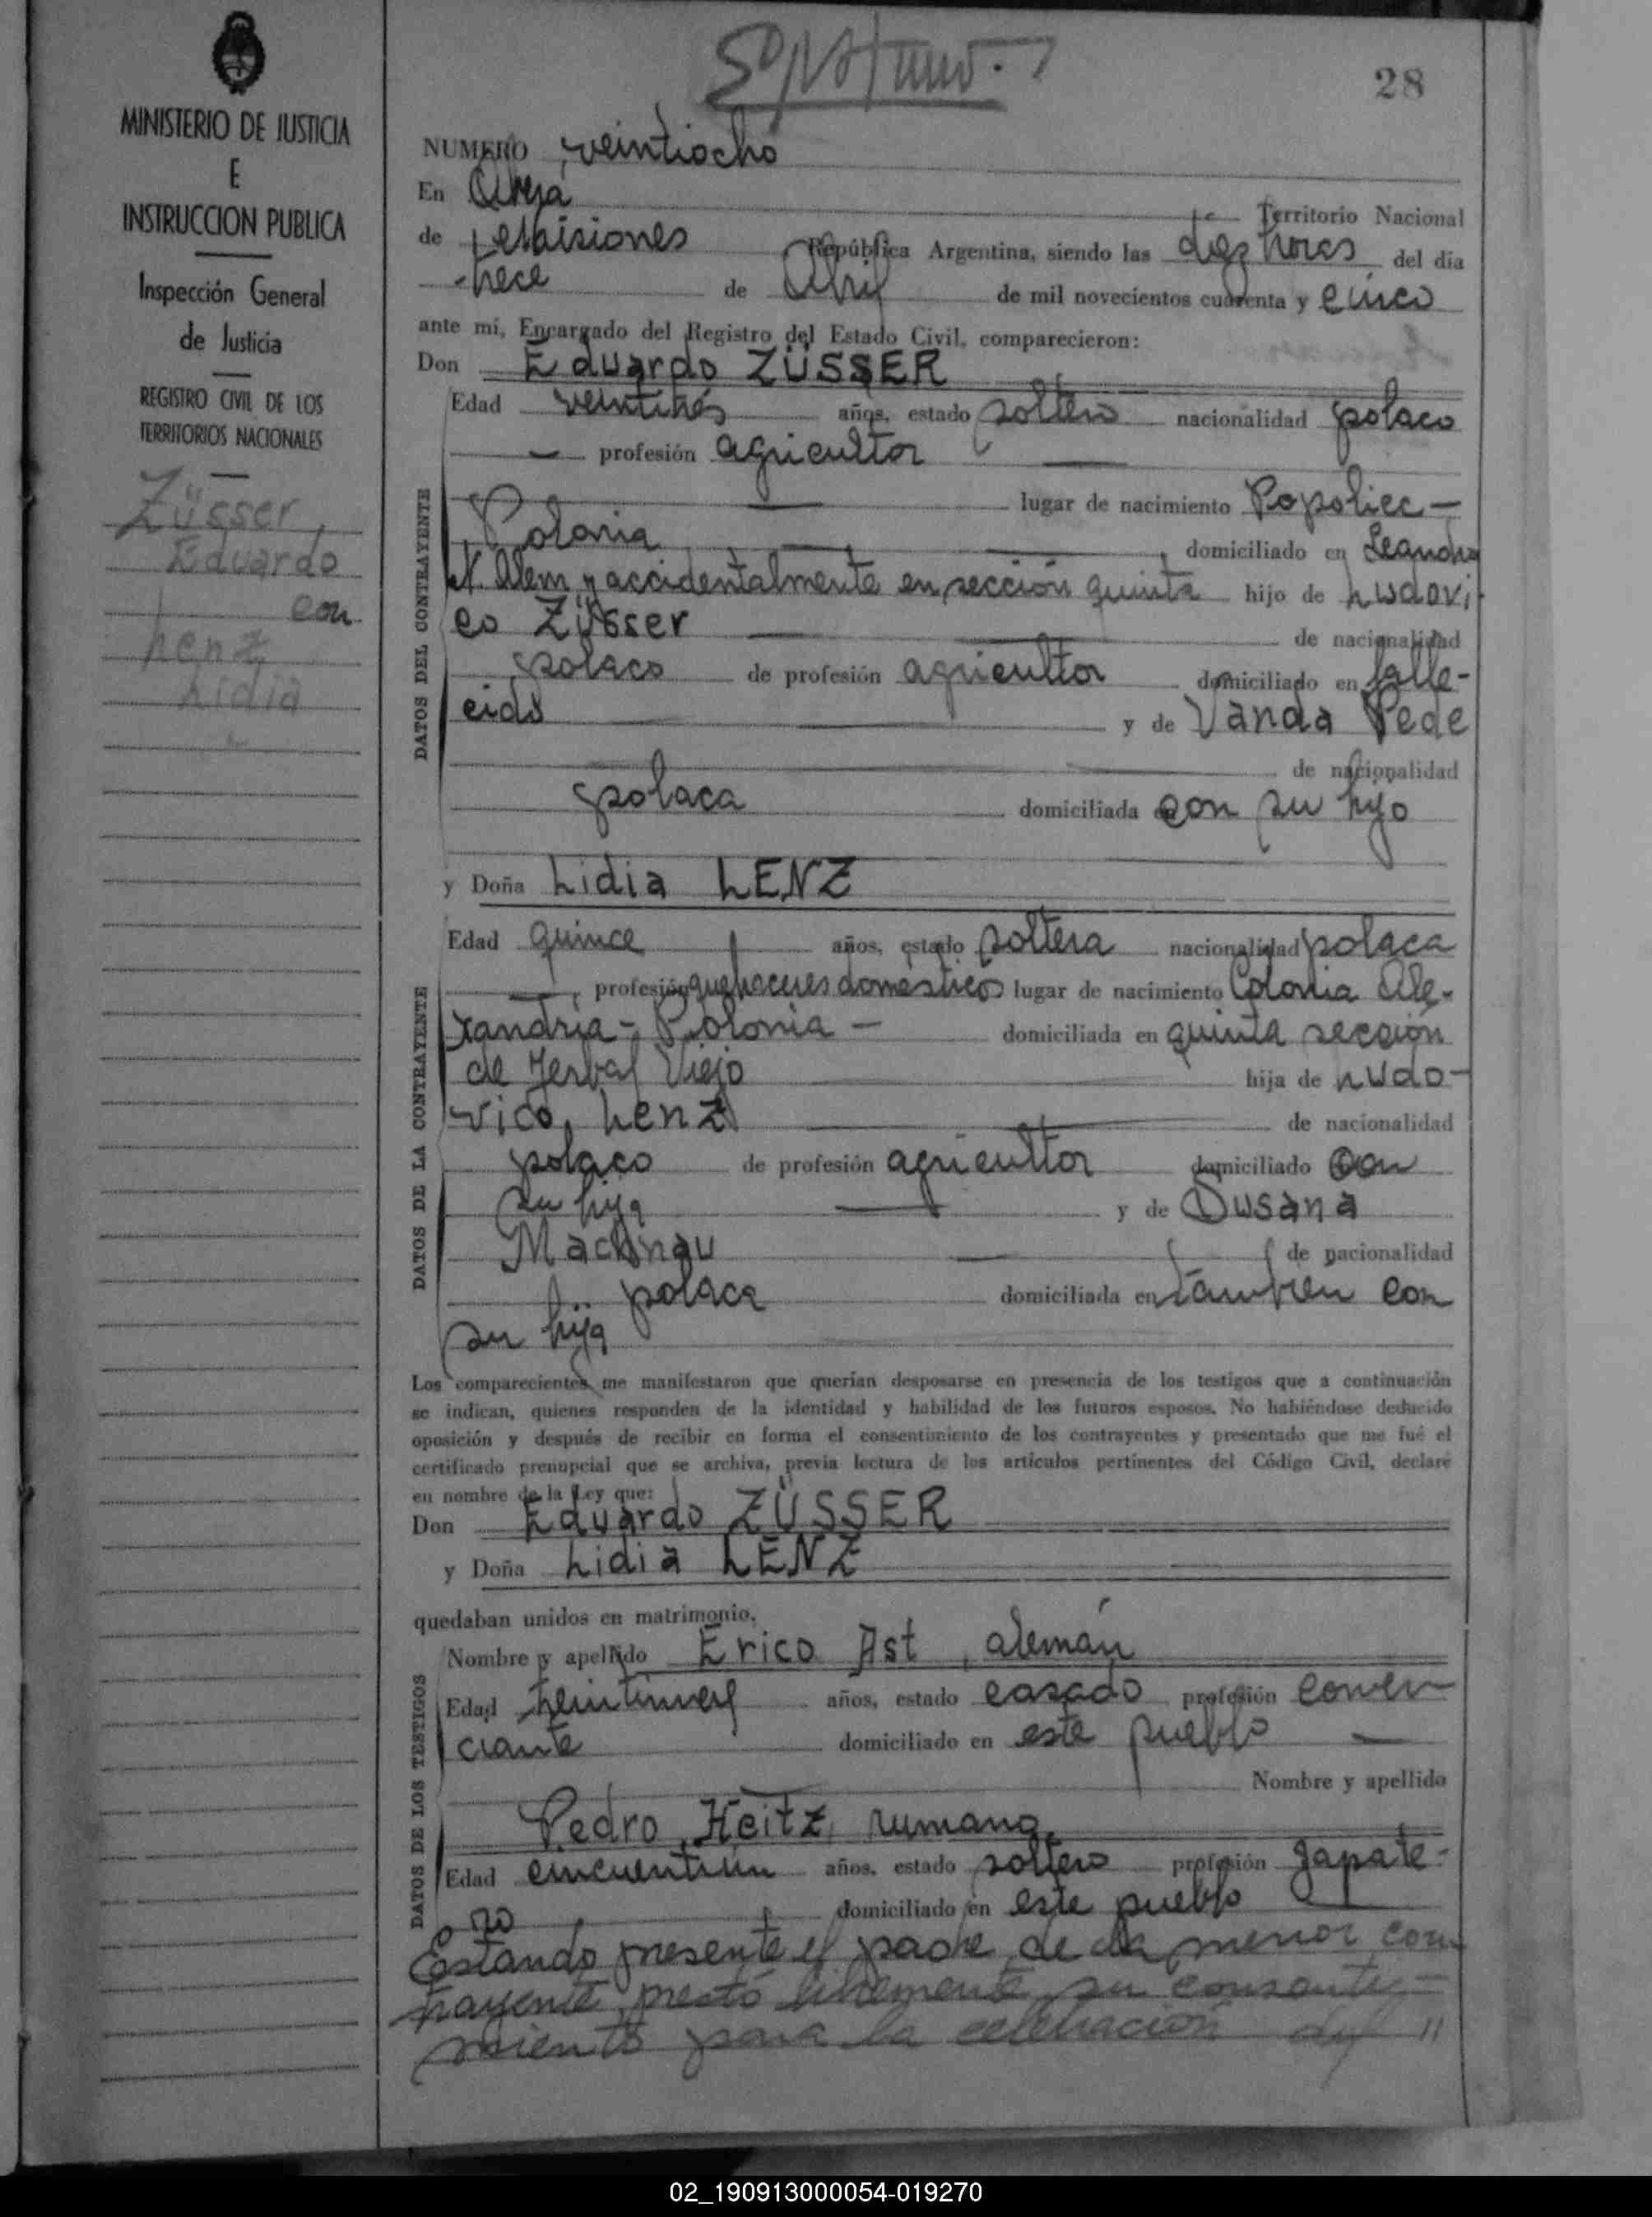 28
MINISTERIO DE JUSTICIA
E
INSTRUCCION PUBLICA
Inspección General
de Justicia
REGISTRO CIVIL DE LOS
TERRITORIOS NACIONALES
Züsser,
Eduardo
con
Lenz,
Lidia
NUMERO veintiocho
En Oberá Territorio Nacional
de Misiones República Argentina, siendo las diez horas del día
trece de Abril de mil novecientos cuarenta y cinco
ante mi, Encargado del Registro del Estado Civil, comparecieron:
Don Eduardo ZÜSSER
DATOS DEL CONTRAYENTE
Edad veintitrés años, estado soltero nacionalidad polaco
profesión agricultor
lugar de nacimiento Ropoliec -
Polonia domiciliado en Leandro
N. Alem y accidentalmente en sección quinta hijo de Ludovi-
co Züsser de nacionalidad
polaco de profesión agricultor domiciliado en falle-
cido y de Vanda Pede
de nacionalidad
polaca domiciliada en con su hijo
y Doña Lidia LENZ
DATOS DE LA CONTRAYENTE
Edad quince años, estado soltera nacionalidad polaca
profesión quehaceres domésticos lugar de nacimiento Colonia Ale-
xandria - Polonia - domiciliada en quinta sección
de Yerbal Viejo hija de Ludo-
vico Lenz de nacionalidad
polaco de profesión agricultor domiciliado con
su hija y de Susana
Machnau de nacionalidad
polaca domiciliada en también con
su hija
Los comparecientes me manifestaron que querían desposarse en presencia de los testigos que a continuación
se indican, quienes responden de la identidad y habilidad de los futuros esposos. No habiéndose deducido
oposición y después de recibir en forma el consentimiento de los contrayentes y presentado que me fué el
certificado prenupcial que se archiva, previa lectura de los artículos pertinentes del Código Civil, declaré
en nombre de la Ley que:
Don Eduardo ZÜSSER
y Doña Lidia LENZ
quedaban unidos en matrimonio.
DATOS DE LOS TESTIGOS
Nombre y apellido Erico Ast, alemán
Edad años, estado casado profesión comer-
ciante domiciliado en este pueblo
Nombre y apellido
Pedro Heitz, rumano,
Edad cincuentiún años, estado soltero profesión zapate-
ro domiciliado en este pueblo
Estando presente el padre de la menor con-
trayente, prestó libremente su consenti-
miento para la celebración del "
02_190913000054-019270